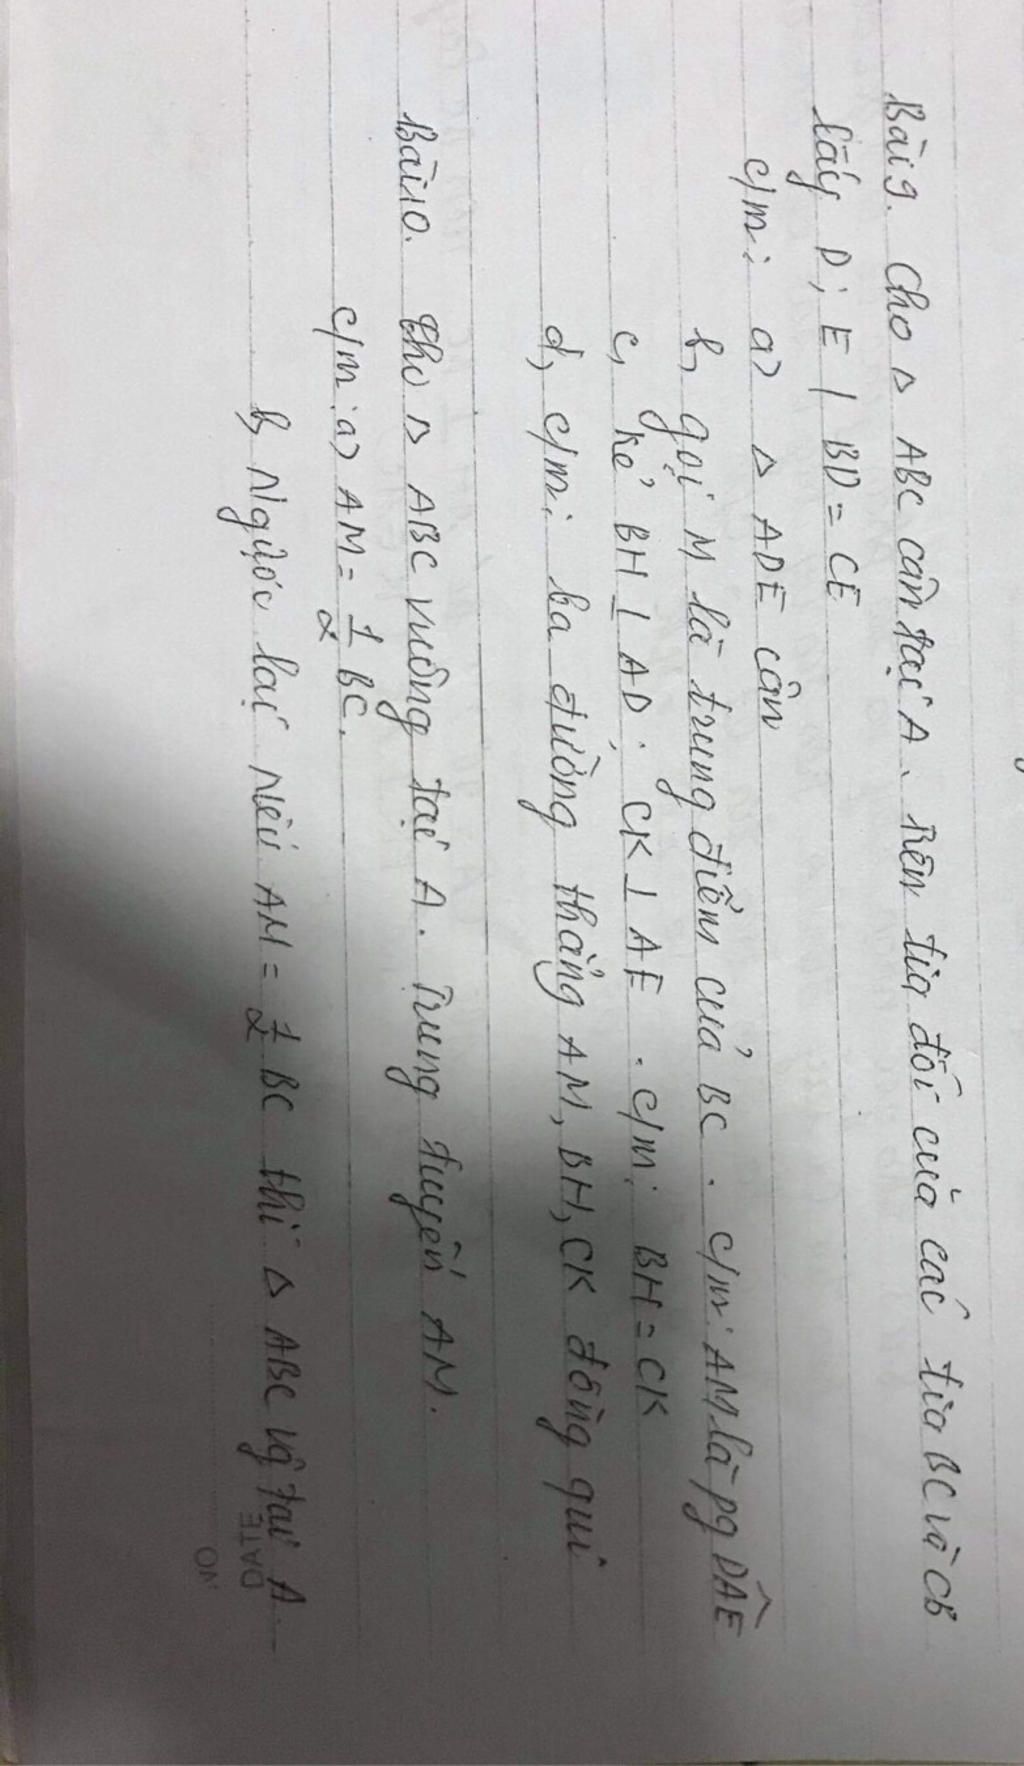 Bài 9. Cho △ ABC cân tại A. Trên tia đối của các tia BC và CB
lấy D; E / BD = CE
c/m: a> △ ADE cân
b, gọi M là trung điểm của BC. c/m: AM là pg DÂE
c, kẻ BH ⊥ AD; CK ⊥ AE. c/m: BH = CK
d, c/m: ba đường thẳng AM, BH, CK đồng qui
Bài 10. Cho △ ABC vuông tại A. Trung tuyến AM.
c/m: a> AM = 1/2 BC.
b, Ngược lại nếu AM = 1/2 BC thì △ ABC vg tại A.
DATE
NO